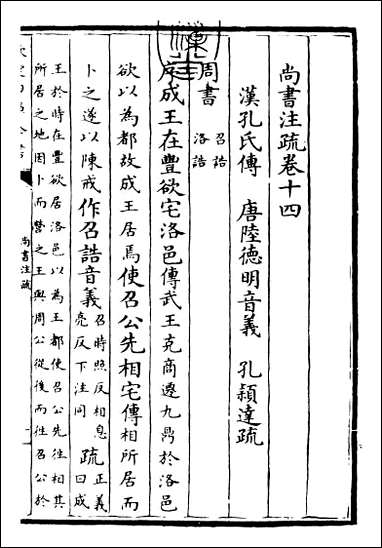 尚書注疏卷十四
漢孔氏傳　唐陸德明音義　孔穎達疏
周書
召誥
洛誥
序成王在豐欲宅洛邑傳武王克商遷九鼎於洛邑
欲以為都故成王居焉使召公先相宅傳相所居而
卜之遂以陳戒作召誥音義召時照反相息
亮反下注同疏正義
曰成
王於時在豐欲居洛邑以為王都使召公先往相其
所居之地因卜而營之王與周公從後而往召公於
尚書注疏